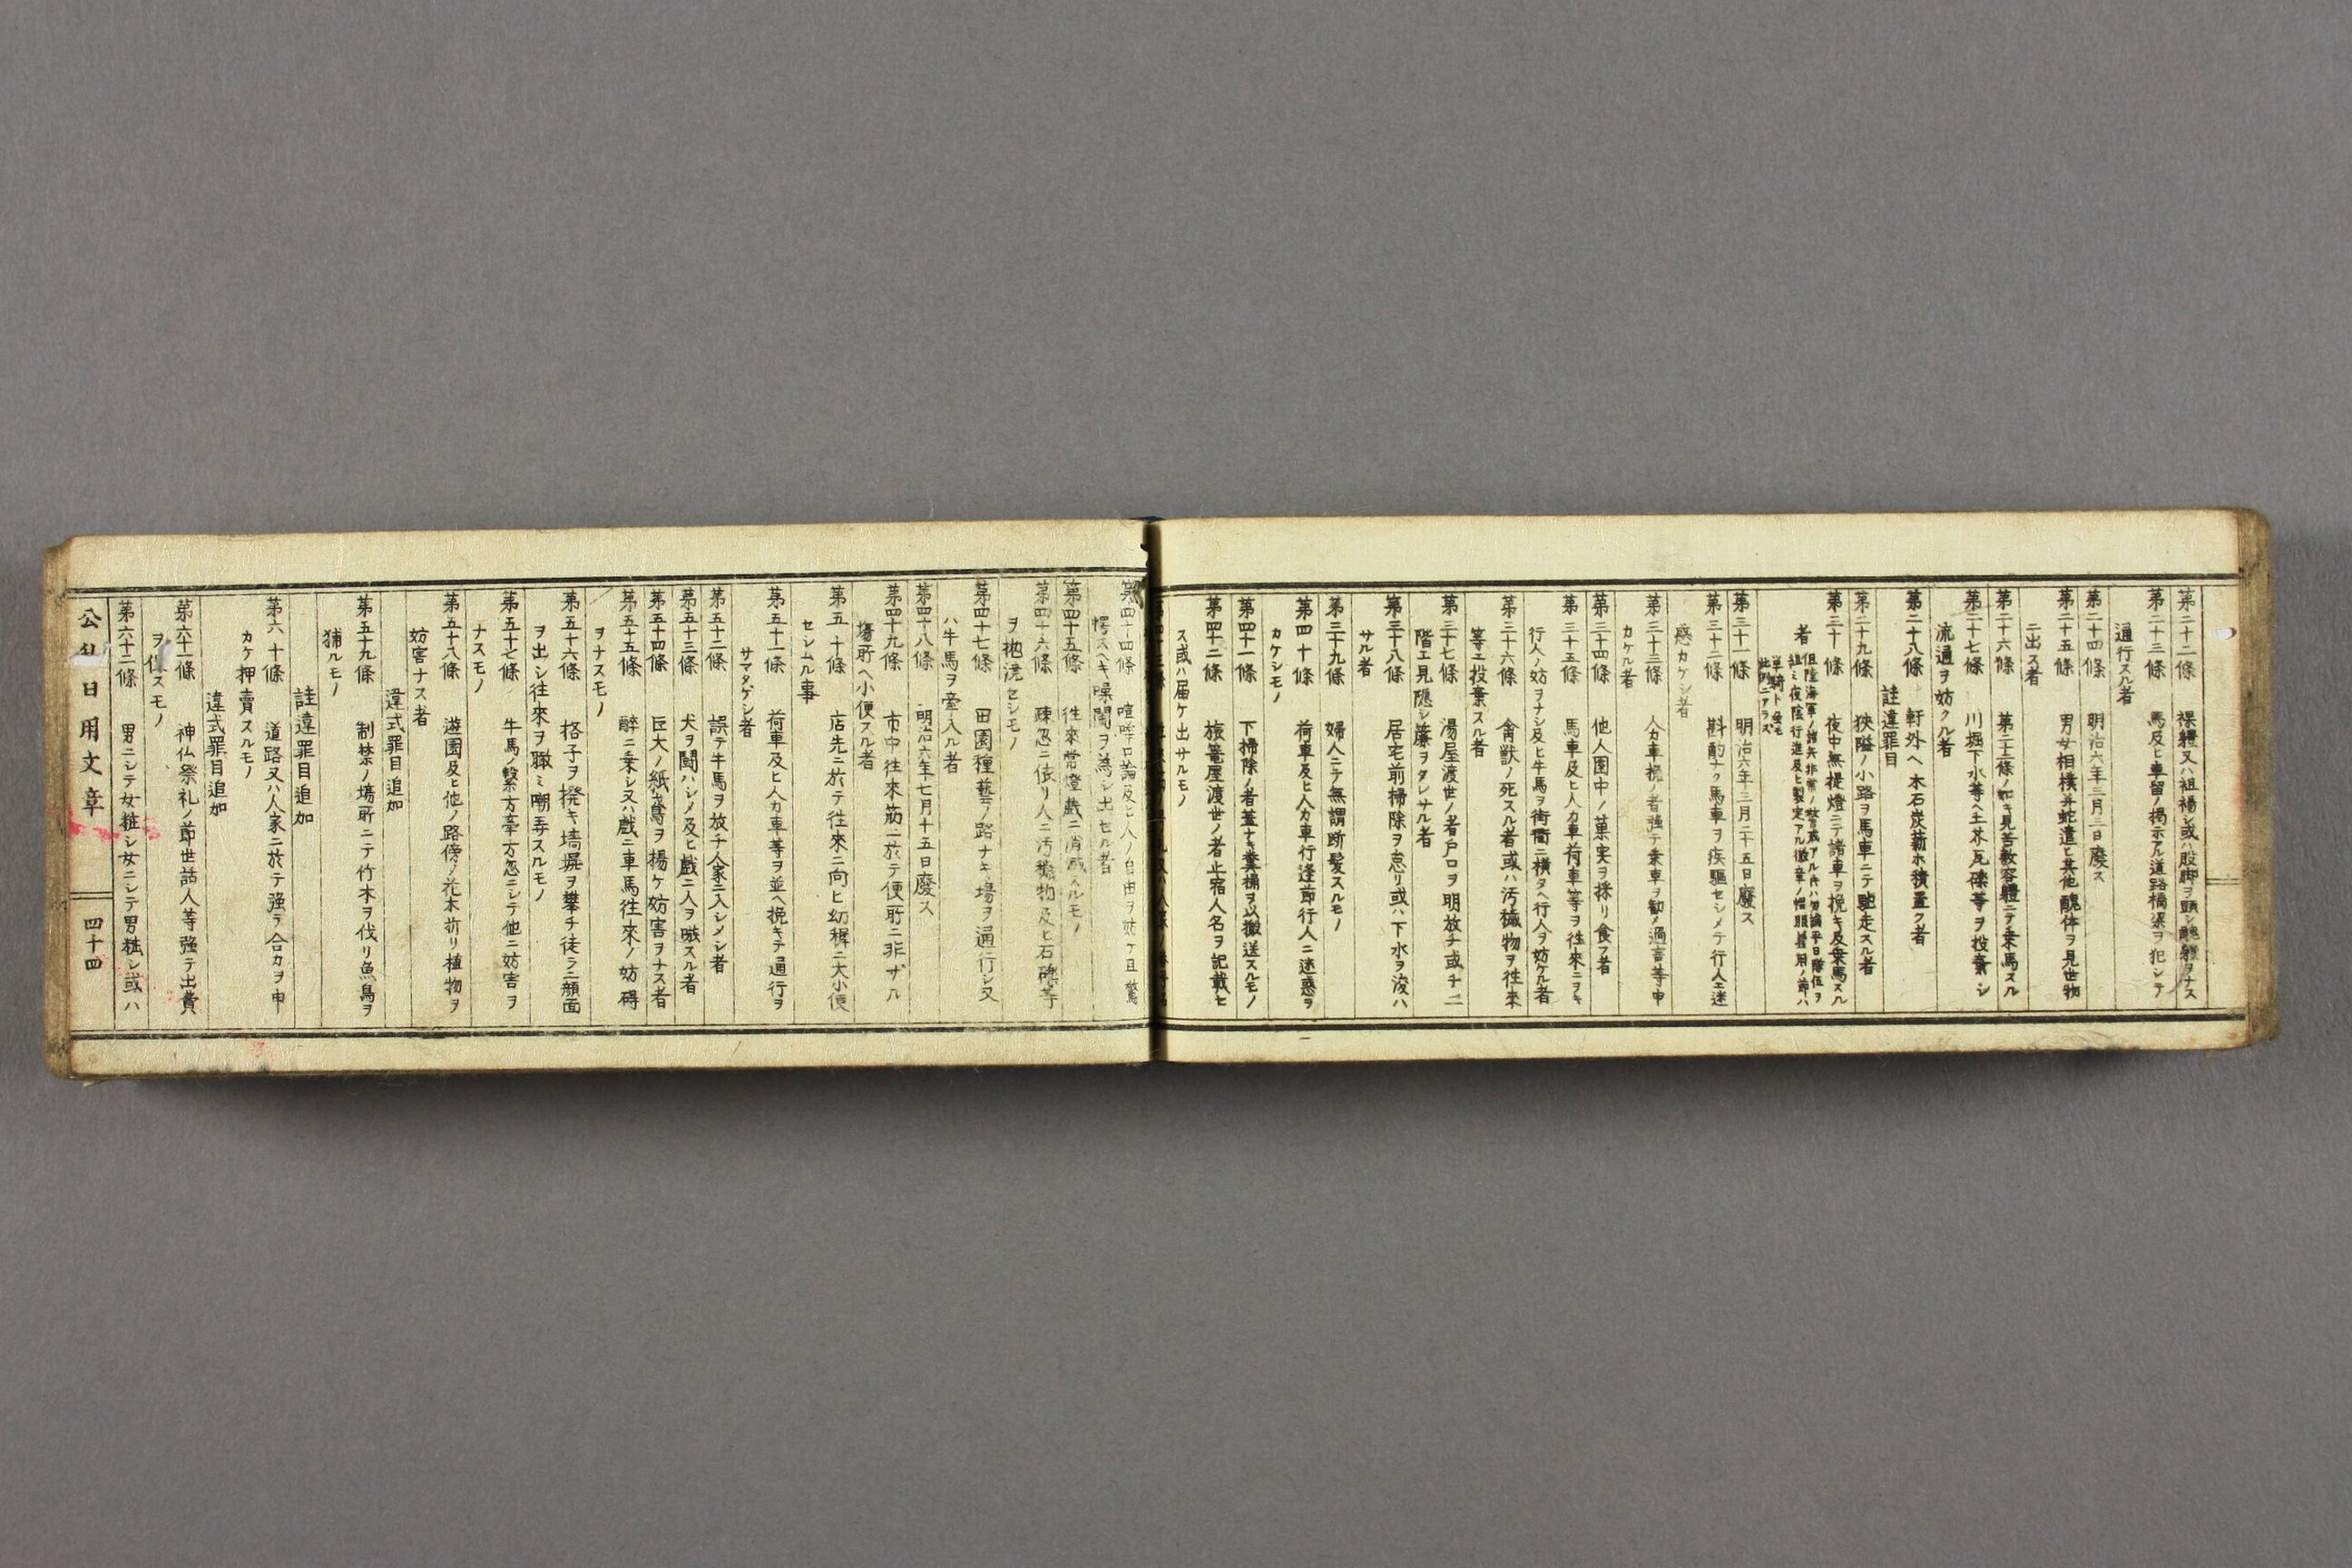 第二十二條 裸體又ハ袒裼シ或ハ股脚ヲ顕シ醜體ヲナス
第二十三條 馬及ヒ車留ノ掲示アル道路橋梁ヲ犯シテ
通行スル者
第二十四條 明治六年三月三日廢ス
第二十五條 男女相撲并蛇遣ヒ其他醜体ヲ見世物
ニ出ス者
第二十六條 第二十二條ノ如キ見苦敷容體ニテ乗馬スル
第二十七條 川堀下水等ヘ土芥瓦礫等ヲ投棄シ
流通ヲ妨クル者
第二十八條 軒外ヘ木石炭薪ホ積置ク者
註違罪目
第二十九條 狹隘ノ小路ヲ馬車ニテ馳走スル者
第三十條 夜中無提燈ニテ諸車ヲ挽キ及乗馬スル
者
但陸海軍ノ諸兵非常ノ警戒アル片ハ勿論平日隊伍ヲ
組ミ夜陰行進及ヒ製定アル徽章ノ帽服着用ノ節ハ
單騎ト雖モ
此例ニアラズ
第三十一條 明治六年三月二十五日廢ス
第三十二條 斟酌ナク馬車ヲ疾驅セシメテ行人エ迷
惑カケシ者
第三十三條 人力車挽ノ者強テ乗車ヲ勧メ過言等申
カケル者
第三十四條 他人園中ノ菓実ヲ採リ食フ者
第三十五條 馬車及ヒ人力車荷車等ヲ往來ニヲキ
行人ノ妨ヲナシ及ヒ牛馬ヲ街衢ニ横タヘ行人ヲ妨ケル者
第三十六條 禽獣ノ死スル者或ハ汚穢物ヲ往來
等エ投棄スル者
第三十七條 湯屋渡世ノ者戸口ヲ明放チ或チ二
階エ見隠シ簾ヲタレサル者
第三十八條 居宅前掃除ヲ怠リ或ハ下水ヲ浚ハ
サル者
第三十九條 婦人ニテ無謂断髪スルモノ
第四十條 荷車及ヒ人力車行逢節行人ニ迷惑ヲ
カケシモノ
第四十一條 下掃除ノ者蓋ナキ糞桶ヲ以搬送スルモノ
第四十二條 旅篭屋渡世ノ者止宿人名ヲ記載セ
ス或ハ届ケ出サルモノ
第四十四條 喧嘩口論及ヒ人ノ自由ヲ妨ケ且驚
愕スヘキ噪閙ヲ為シ出セル者
第四十五條 往來常燈戯ニ消滅スルモノ
第四十六條 疎忽ニ依リ人ニ汚穢物及ヒ石礫等
ヲ抛澆セシモノ
第四十七條 田園種藝ノ路ナキ場ヲ通行シ又
ハ牛馬ヲ牽入ル者
第四十八條 明治六年七月十五日廢ス
第四十九條 市中往來筋ニ於テ便所ニ非ザル
塲所ヘ小便スル者
第五十條 店先ニ於テ往來ニ向ヒ幼穉ニ大小便
セシムル事
第五十一條 荷車及ヒ人力車等ヲ並ヘ挽キテ通行ヲ
サマタゲシ者
第五十二條 誤テ牛馬ヲ放チ人家ニ入シメシ者
第五十三條 犬ヲ鬪ハシメ及ヒ戯ニ人ヲ嗾スル者
第五十四條 巨大ノ紙鳶ヲ揚ケ妨害ヲナス者
第五十五條 醉ニ乗シ又ハ戯ニ車馬往來ノ妨碍
ヲナスモノ
第五十六條 格子ヲ撥キ墻塀ヲ攀チ徒ラニ顔面
ヲ出シ往來ヲ瞰ミ嘲弄スルモノ
第五十七條 牛馬ノ繋方牽方忽ニシテ他ニ妨害ヲ
ナスモノ
第五十八條 遊園及ヒ他ノ路傍ノ花木折リ植物ヲ
妨害ナス者
違式罪目追加
第五十九條 制禁ノ塲所ニテ竹木ヲ伐リ魚鳥ヲ
捕ルモノ
註違罪目追加
第六十條 道路又ハ人家ニ於テ强テ合力ヲ申
カケ押賣スルモノ
違式罪目追加
第六十一條 神仏祭礼ノ節世話人等强テ出費
ヲ促スモノ
第六十二條 男ニシテ女粧シ女ニシテ男粧シ或ハ
公私日用文章 四十四